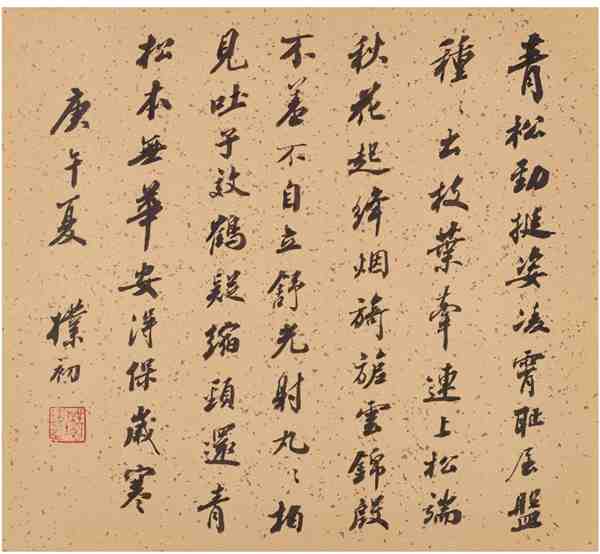 青松勁挺姿凌霄恥屈盤
種〻出枝葉牽連上松端
秋花起絳烟旖旎雲錦殷
不羞不自立舒光射丸〻柏
見吐子效鶴疑縮頸還青
松本無華安得保歲寒
庚午夏
樸初